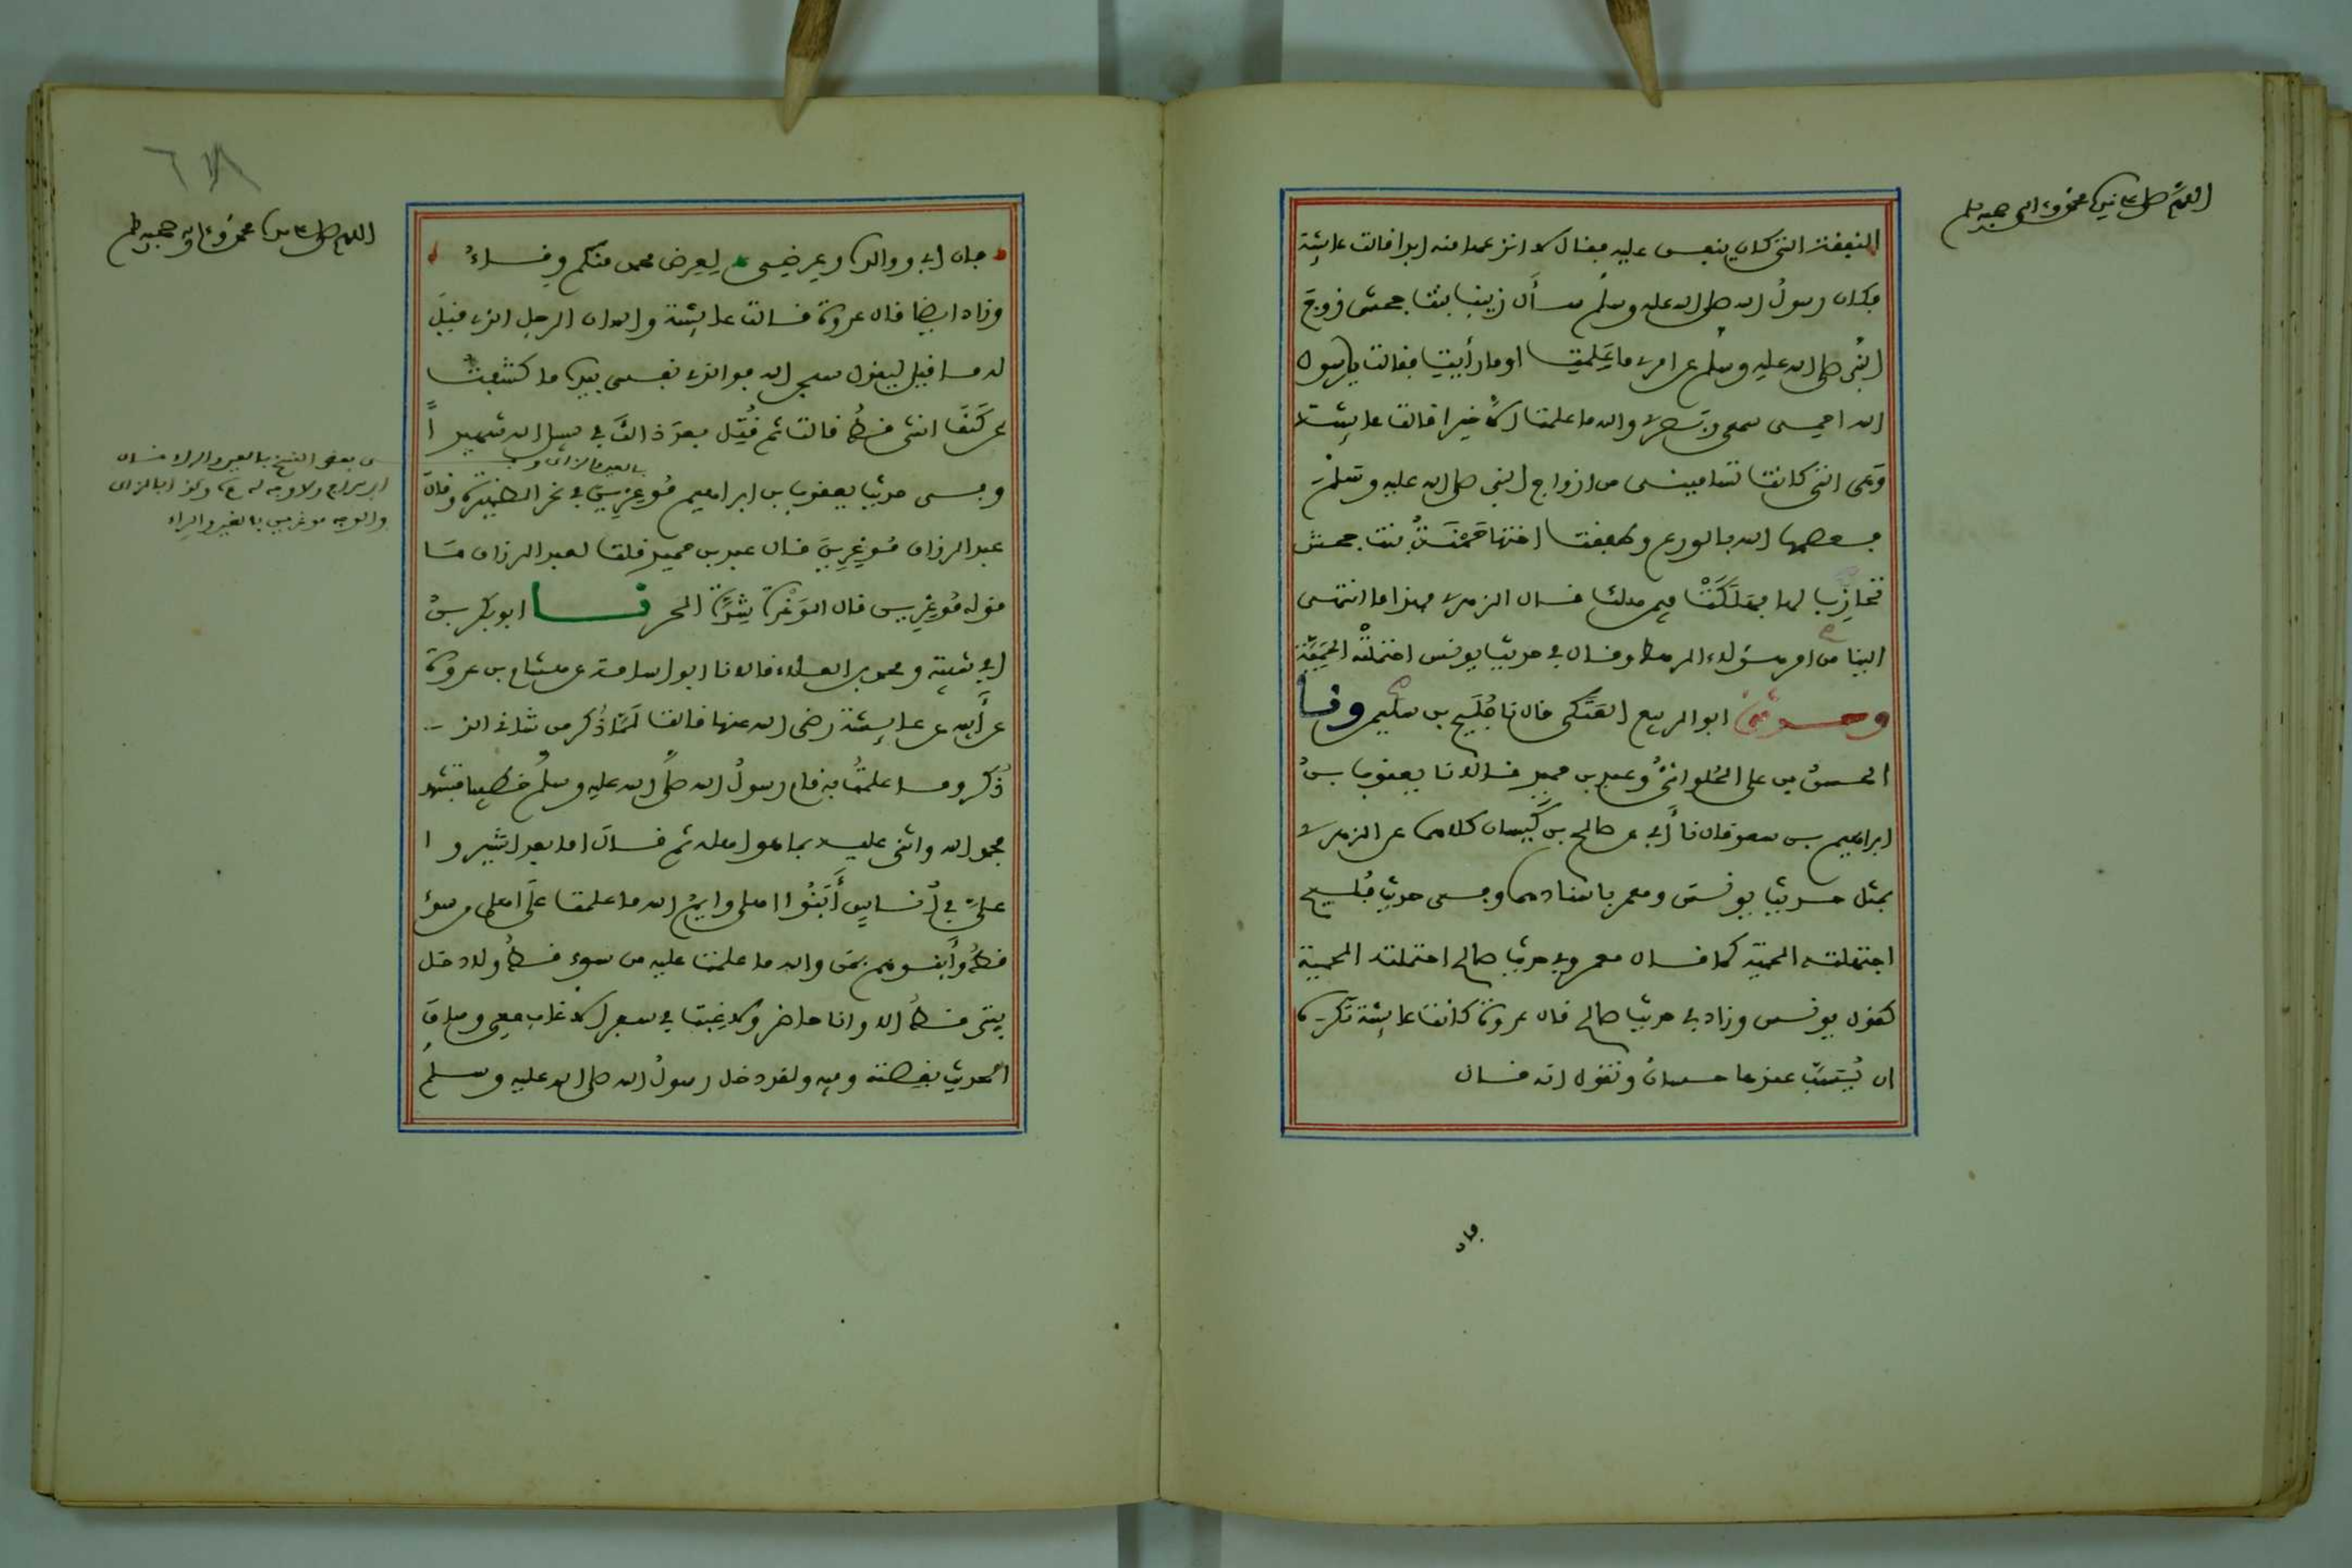 اللهم صل على نبينا محمد وعلى اله وصحبه وسلم
النفقة التي كان ينفق عليه وقال لا انزعها منه ابدا قالت عائشة
وكان رسولُ الله صلى الله عليه وسلم سأل زينب بنت جحش زوج
النبي صلى الله عليه وسلم عن امري ما علمتِ او ما رأيتِ فقالت يا رسول
الله احمي سمعي وبصري والله ما علمت الا خيرا قالت عائشة
وَهي التي كانت تساميني من ازواج النبي صلى الله عليه وسلم
فعصمها الله بالورع وطفقت اختها حَمْنَةُ بنت جحش
تحارِب لها فهَلَكَتْ فيمن هلك قال الزهري فهذا ما انتهى
الينا من امر هؤلاء الرهط وقال في حديث يونس احتملَتْه الحَمِيَّة
وحدثني ابو الربيع العَتَكي قال نا فُلَيح بن سليم ونا
الحسنُ بن علي الحُلوانيُّ وعبد بن حميد قالا نا يعقوب بنُ
ابراهيم بن سعد قال نا أبي عن صالح بن كَيسان كلاهما عن الزهري
بمثل حديث يونسَ ومعمر باسنادهما وفي حديث فُليح
اجتهلته الحمية كما قال معمر وفي حديث صالح احتملته الحمية
كقول يونس وزاد في حديث صالح قال عروة كانت عائشة تكره
ان يُسَبَّ عندها حسانُ وتقول انه قال
فان
٦٧٨
اللهم صل على نبينا محمد وعلى اله وصحبه وسلم
فان ابي ووالده وعرضي لِعِرض محمد منكم وِقاءُ
وزاد ايضا قال عروة قالت عائشة والله ان الرجل الذي قيلَ
له ما قيل ليقول سبحن الله فوالذي نفسي بيده ما كشفتُ
عن كَنَفِ انثى قط قالت ثم قُتِل بعدَ ذلك في سبيل الله شهيداً
وفي حديث يعقوب بن ابراهيم مُوعِزِينَ في نحر الظهيرة وقال
بالعين والزاي
عبد الرزاق مُوغِرِينَ قال عبد بن حميد قلت لعبد الرزاق مَا
قوله مُوغِرين قال الوَغْرة شِدَّة الحر نا ابو بكر بنُ
ابي شيبة ومحمد بن العلاء قالا نا ابو اسامة عن هشام بن عروة
عن أبيه عن عائشة رضي الله عنها قالت لَمّا ذُكر من شاني الذي
ذُكر وما علمتُ به قام رسولُ الله صلى الله عليه وسلم خطيبا فتشهد
فحمد الله واثنى عليه بما هو اهله ثم قال اما بعد اشيروا
عليَّ في اُناسٍ أَبَنُوا اهلي وايمُ الله ما علمت على اهلي من سوءٍ
قطُّ وأَبنوهم بمن والله ما علمت عليه من سوء قطُّ ولا دخل
بيتي قطُّ الا وانا حاضر ولا غِبت في سفر الا غاب معي وساق
الحديث بقصته وفيه ولقد دخل رسولُ الله صلى الله عليه وسلم
في بعض النسخ بالعين والراء قال
ابن سراج ولا وجه له وكذا بالزاي
والوجه موغرين بالغين والراء